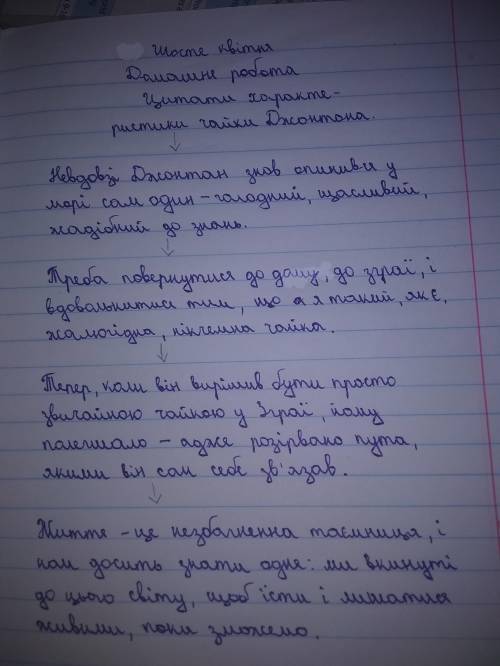 Шосте квітня
Домашнє робота
Цитати характе-
ристики чайки Джонтона.
Невдовзі Джонтан знов опинився у
морі сам один - голодний, щасливий,
жадібний до знань.
Треба повернутися до дому, до зграї, і
вдовольнитися тим, що я такий, як є,
жалюгідна, нікчемна чайка.
Тепер, коли він вирішив бути просто
звичайною чайкою у Зграї, йому
полегшало - адже розірвано пута,
якими він сам себе зв'язав.
Життє - це незбагненна таємниця, і
нам досить знати одне: ми вкинуті
до цього світу, щоб їсти і лишатися
живими, поки зможемо.